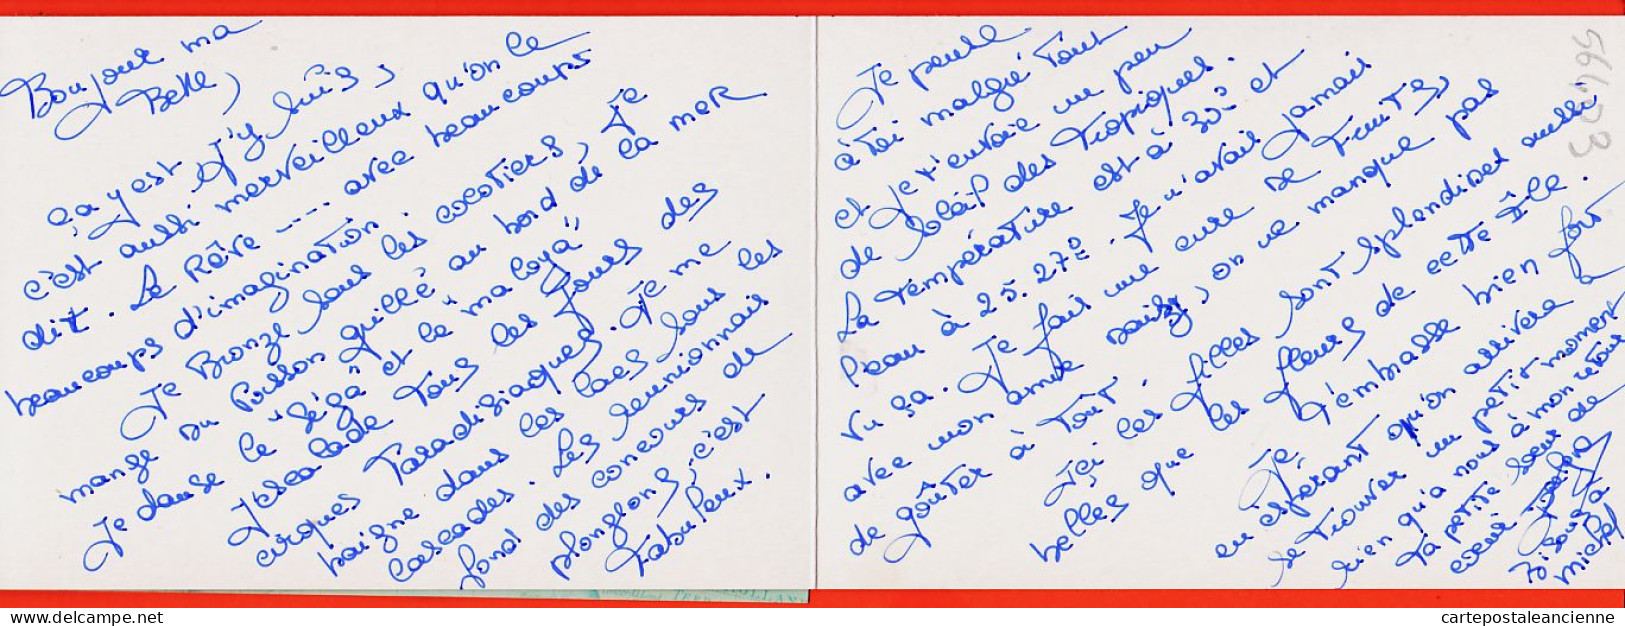 Bonjour ma
Belle,
ça y est J'y suis,
c'est aussi merveilleux qu'on le
dit. Le Rêve ---- avec beaucoups
beaucoups d'imagination.
Je Bronze sous les cocotiers, Je
mange du Poisson grillé au bord de la mer
Je danse le "séga" et le "maloya"
J'escalade Tous les Jours des
cirques Paradisiaques. Je me
baigne dans les lacs sous les
cascades. Les réunionnais
font des concours de
plongeons, c'est
Fabuleux.
Je pense
à toi malgré Tout
et Je t'envoie un peu
de Soleil des Tropiques.
La température est à 30° et
l'eau à 25.27°. Je n'avais Jamais
vu ça. Je fais une cure de Fruits,
avec mon amie on ne manque pas
de goûter à Tout.
Ici les filles sont splendides aussi
belles que les fleurs de cette île.
Je t'embrasse bien fort
en espérant qu'on arrivera à
se trouver un petit moment
rien qu'à nous à mon retour
Ta petite sœur de
cœur
Bisous à
Michel
561123
cartepostaleancienne